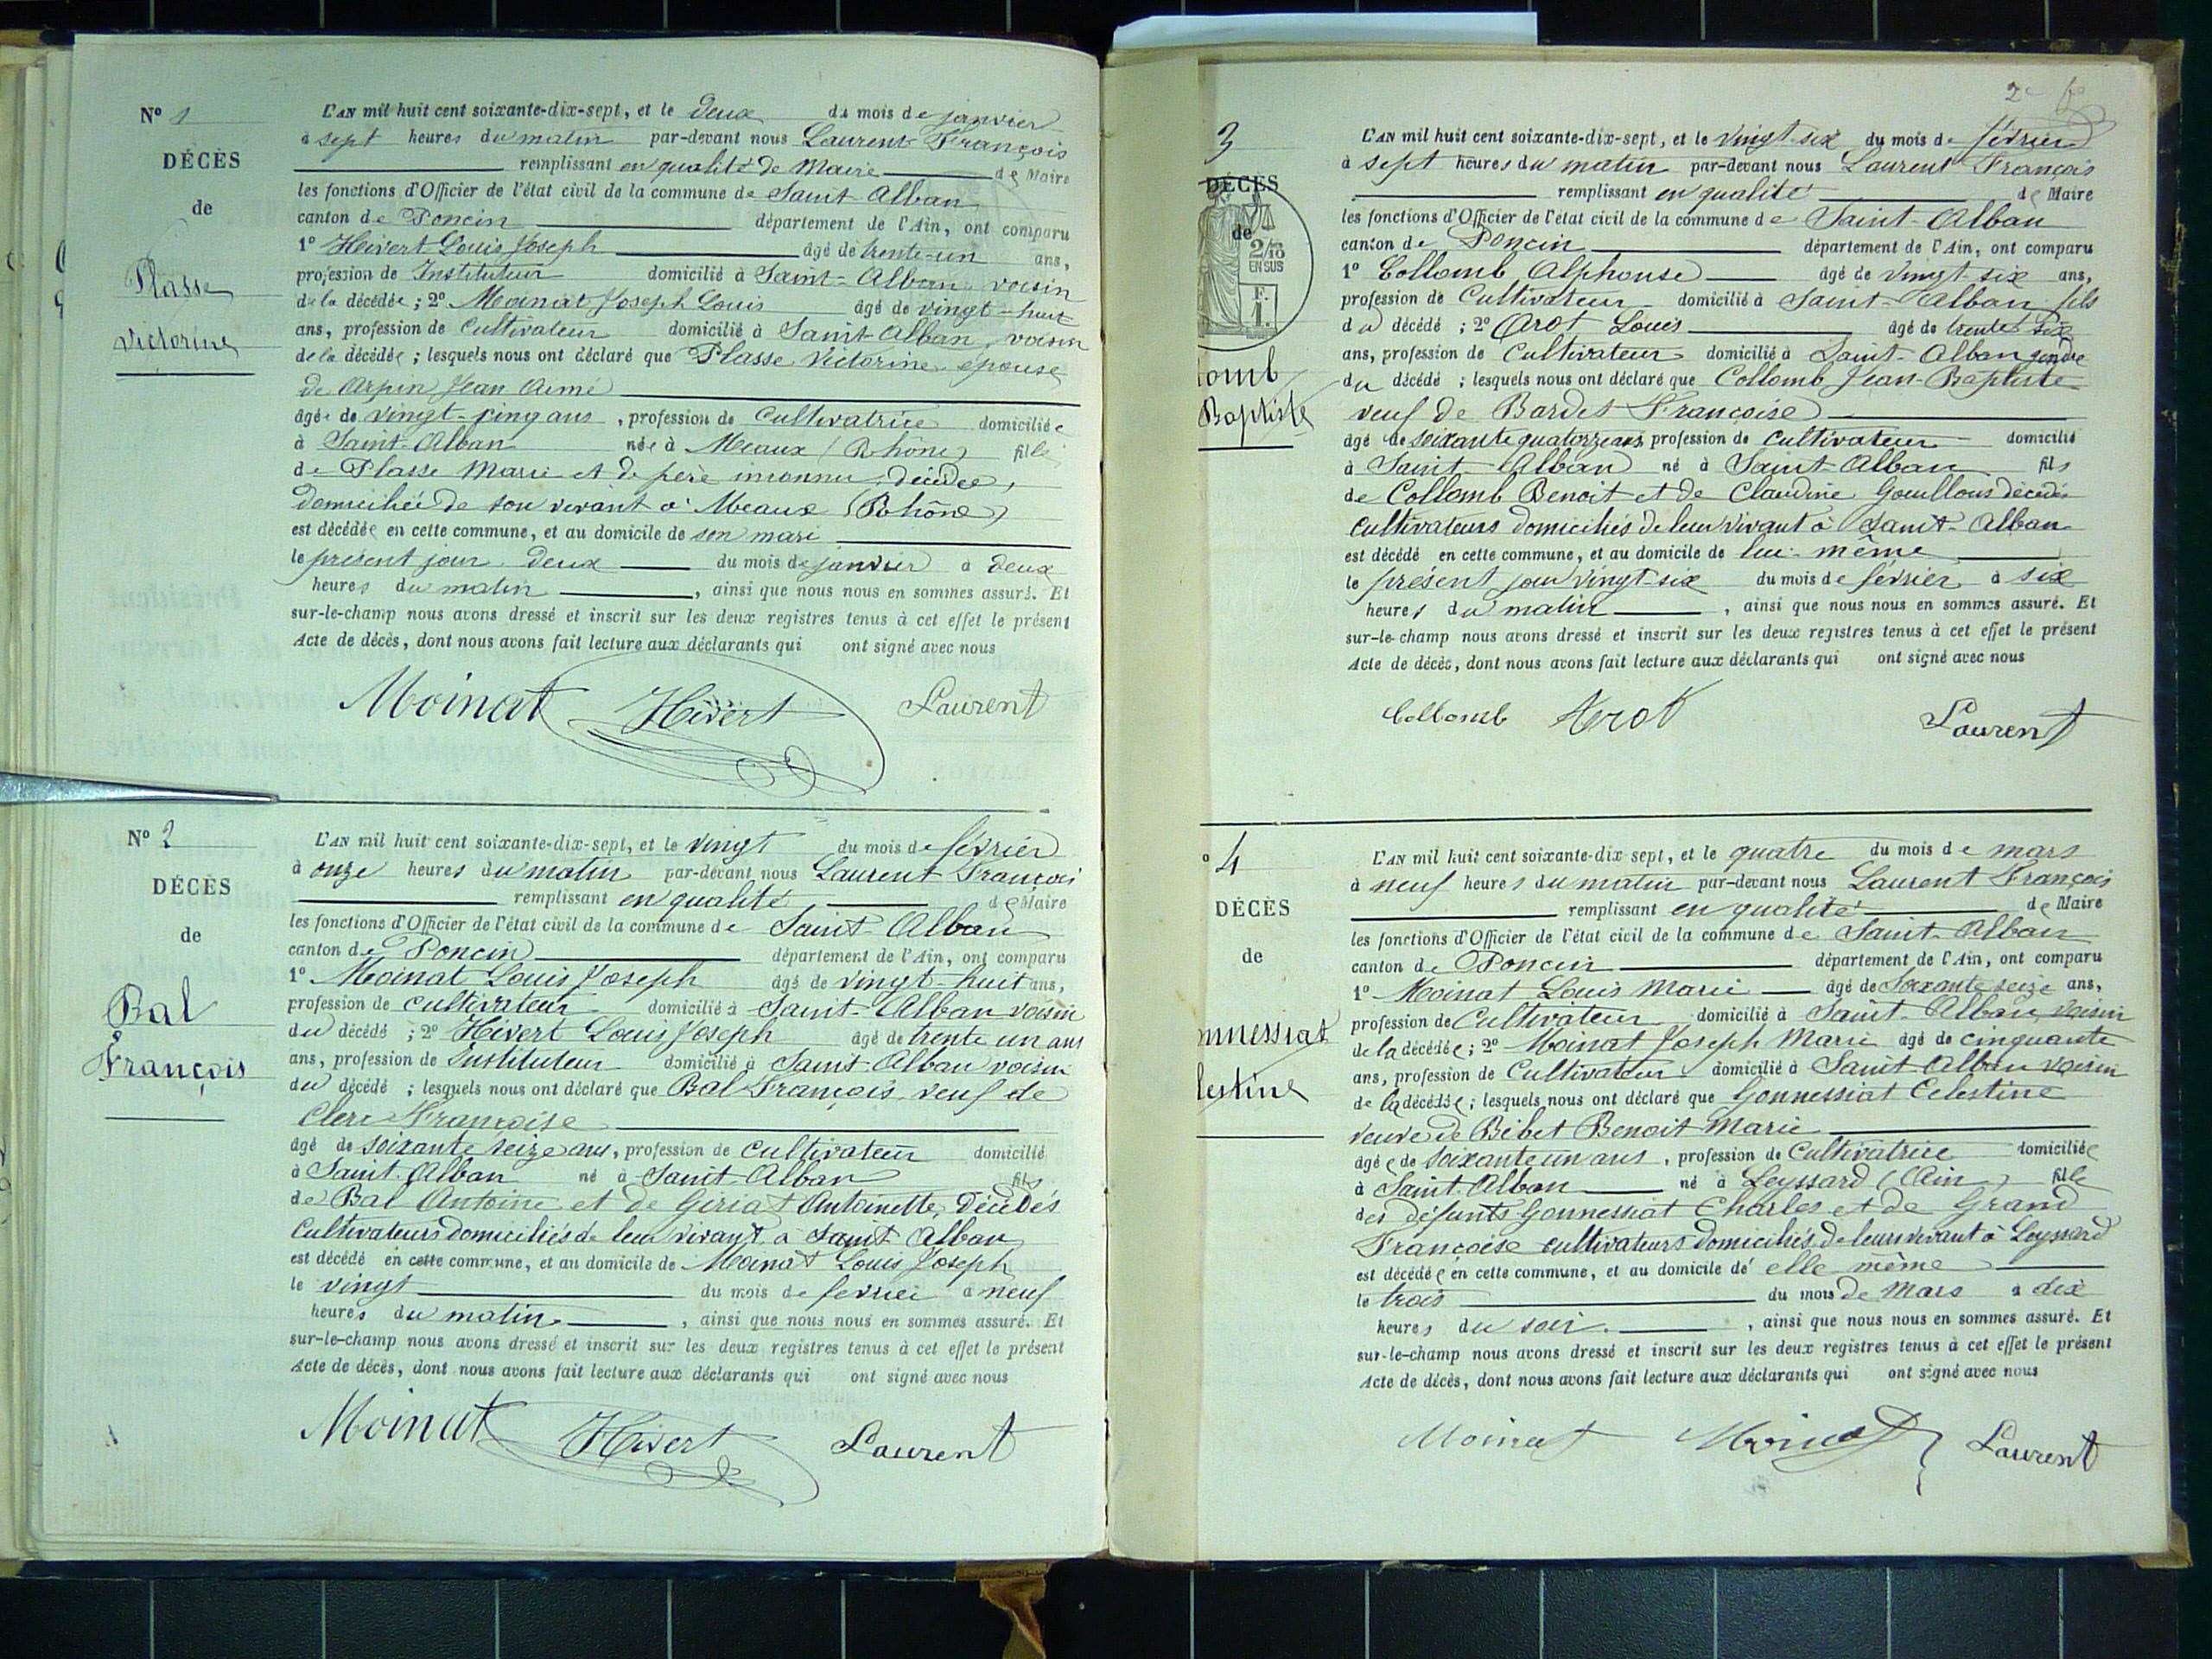 N° 1
DÉCÈS
de
Plasse
Victorine
L'AN mil huit cent soixante-dix-sept, et le deux du mois de janvier
à sept heures du matin par-devant nous Laurent François
remplissant en qualité de Maire de Maire
les fonctions d'Officier de l'état civil de la commune de Saint-Alban
canton de Poncin département de l'Ain, ont comparu
1° Hivert Louis Joseph âgé de trente-un ans,
profession de Instituteur domicilié à Saint-Alban voisin
de la décédée ; 2° Moinat Joseph Louis âgé de vingt-huit
ans, profession de Cultivateur domicilié à Saint-Alban, voisin
de la décédée ; lesquels nous ont déclaré que Plasse Victorine épouse
de Arpin Jean Aimé
âgée de vingt-cinq ans, profession de Cultivatrice domiciliée
à Saint-Alban née à Meaux (Rhône) fille
de Plasse Marie et de père inconnu, décédée,
domiciliée de son vivant à Meaux (Rhône)
est décédée en cette commune, et au domicile de son mari
le présent jour deux du mois de janvier à deux
heures du matin, ainsi que nous nous en sommes assuré. Et
sur-le-champ nous avons dressé et inscrit sur les deux registres tenus à cet effet le présent
Acte de décès, dont nous avons fait lecture aux déclarants qui ont signé avec nous
Moinat Hivert Laurent
N° 2
DÉCÈS
de
Bal
François
L'AN mil huit cent soixante-dix-sept, et le vingt du mois de février
à onze heures du matin par-devant nous Laurent François
remplissant en qualité de Maire
les fonctions d'Officier de l'état civil de la commune de Saint-Alban
canton de Poncin département de l'Ain, ont comparu
1° Moinat Louis Joseph âgé de vingt-huit ans,
profession de cultivateur domicilié à Saint-Alban voisin
du décédé ; 2° Hivert Louis Joseph âgé de trente un ans
ans, profession de Instituteur domicilié à Saint-Alban voisin
du décédé ; lesquels nous ont déclaré que Bal François veuf de
Clerc Françoise
âgé de soixante seize ans, profession de cultivateur domicilié
à Saint-Alban né à Saint-Alban fils
de Bal Antoine et de Geriat Antoinette, Décédés
Cultivateurs domiciliés de leur vivant à Saint Alban
est décédé en cette commune, et au domicile de Moinat Louis Joseph
le vingt du mois de février à neuf
heures du matin, ainsi que nous nous en sommes assuré. Et
sur-le-champ nous avons dressé et inscrit sur les deux registres tenus à cet effet le présent
Acte de décès, dont nous avons fait lecture aux déclarants qui ont signé avec nous
Moinat Hivert Laurent
2e
3
DÉCÈS
de
2/10
EN SUS
F.
1.
lomb
Baptiste
L'AN mil huit cent soixante-dix-sept, et le vingt-six du mois de février
à sept heures du matin par-devant nous Laurent François
remplissant en qualité de Maire
les fonctions d'Officier de l'état civil de la commune de Saint-Alban
canton de Poncin département de l'Ain, ont comparu
1° Collomb Alphonse âgé de vingt six ans,
profession de Cultivateur domicilié à Saint-Alban fils
du décédé ; 2° Arot Louis âgé de trente six
ans, profession de Cultivateur domicilié à Saint-Alban gendre
du décédé ; lesquels nous ont déclaré que Collomb Jean-Baptiste
veuf de Bardet Françoise
âgé de soixante quatorze ans, profession de cultivateur domicilié
à Saint-Alban né à Saint-Alban fils
de Collomb Benoit et de Claudine Goullous décédés
cultivateurs domiciliés de leur vivant à Saint-Alban
est décédé en cette commune, et au domicile de lui-même
le présent jour vingt-six du mois de février à six
heures du matin, ainsi que nous nous en sommes assuré. Et
sur-le-champ nous avons dressé et inscrit sur les deux registres tenus à cet effet le présent
Acte de décès, dont nous avons fait lecture aux déclarants qui ont signé avec nous
Collomb Arot Laurent
° 4
DÉCÈS
de
nnessiat
lestine
L'AN mil huit cent soixante-dix-sept, et le quatre du mois de mars
à neuf heures du matin par-devant nous Laurent François
remplissant en qualité de Maire
les fonctions d'Officier de l'état civil de la commune de Saint-Alban
canton de Poncin département de l'Ain, ont comparu
1° Moinat Louis Marie âgé de Soixante seize ans,
profession de Cultivateur domicilié à Saint-Alban, voisin
de la décédée ; 2° Moinat Joseph Marie âgé de cinquante
ans, profession de Cultivateur domicilié à Saint-Alban voisin
de la décédée ; lesquels nous ont déclaré que Gonnessiat Celestine
veuve de Bibet Benoit Marie
âgée de soixante un ans, profession de Cultivatrice domiciliée
à Saint-Alban né à Leyssard (Ain) fille
des défunts Gonnessiat Charles et de Grand
Françoise cultivateurs domiciliés de leur vivant à Leyssard
est décédée en cette commune, et au domicile de elle même
le trois du mois de Mars à dix
heures du soir, ainsi que nous nous en sommes assuré. Et
sur-le-champ nous avons dressé et inscrit sur les deux registres tenus à cet effet le présent
Acte de décès, dont nous avons fait lecture aux déclarants qui ont signé avec nous
Moinat Moinat Laurent